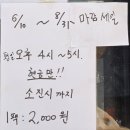 6/10 ~ 8/31 ~ 마감 세일
오후 4시 ~ 5시.
현금만!!
소진시 까지
1팩: 2,000원